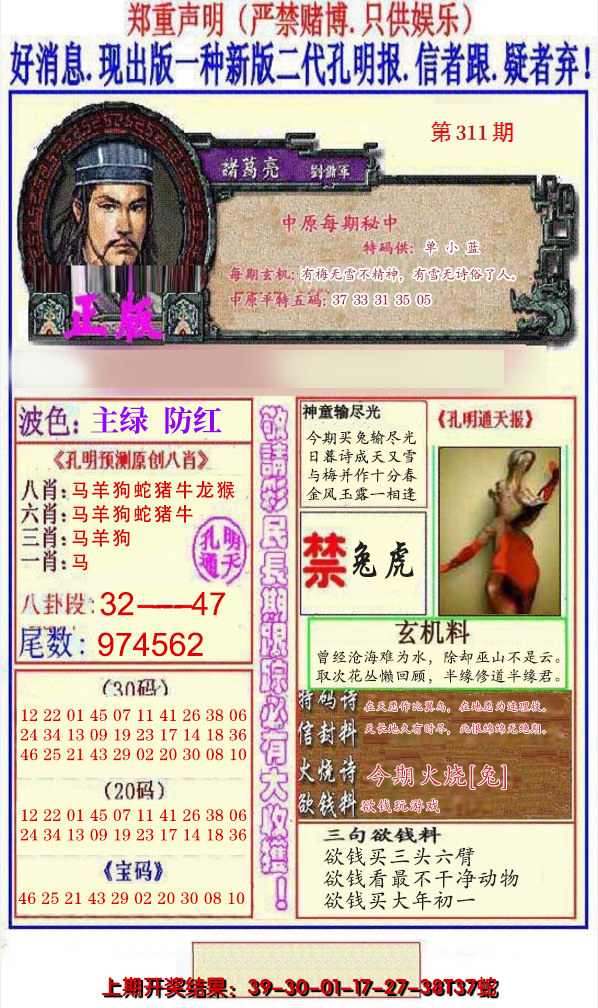 郑重声明（严禁赌博.只供娱乐）
好消息.现出版一种新版二代孔明报.信者跟.疑者弃！
第311期
諸葛亮 劉備軍
中原每期秘中
特码供：单小蓝
每期玄机：有梅无雪不精神，有雪无诗俗了人。
中原平特五码：37 33 31 35 05
正版
波色：主绿 防红
《孔明预测原创八肖》
八肖：马羊狗蛇猪牛龙猴
六肖：马羊狗蛇猪牛
三肖：马羊狗
一肖：马
孔明
通天
八卦段：32——47
尾数：974562
（30码）
12 22 01 45 07 11 41 26 38 06
24 34 13 09 19 23 17 14 18 36
46 25 21 43 29 02 20 30 08 10
（20码）
12 22 01 45 07 11 41 26 38 06
24 34 13 09 19 23 17 14 18 36
《宝码》
46 25 21 43 29 02 20 30 08 10
敬請彩民長期跟踪必有大收獲！
神童输尽光
今期买兔输尽光
日暮诗成天又雪
与梅并作十分春
金风玉露一相逢
《孔明通天报》
禁 兔虎
玄机料
曾经沧海难为水，除却巫山不是云。
取次花丛懒回顾，半缘修道半缘君。
特码诗 在天愿作比翼鸟，在地愿为连理枝。
信封料 天长地久有时尽，此恨绵绵无绝期。
火烧诗 今期火烧[兔]
欲钱料 欲钱玩游戏
三句欲钱料
欲钱买三头六臂
欲钱看最不干净动物
欲钱买大年初一
上期开奖结果：39-30-01-17-27-38T37蛇